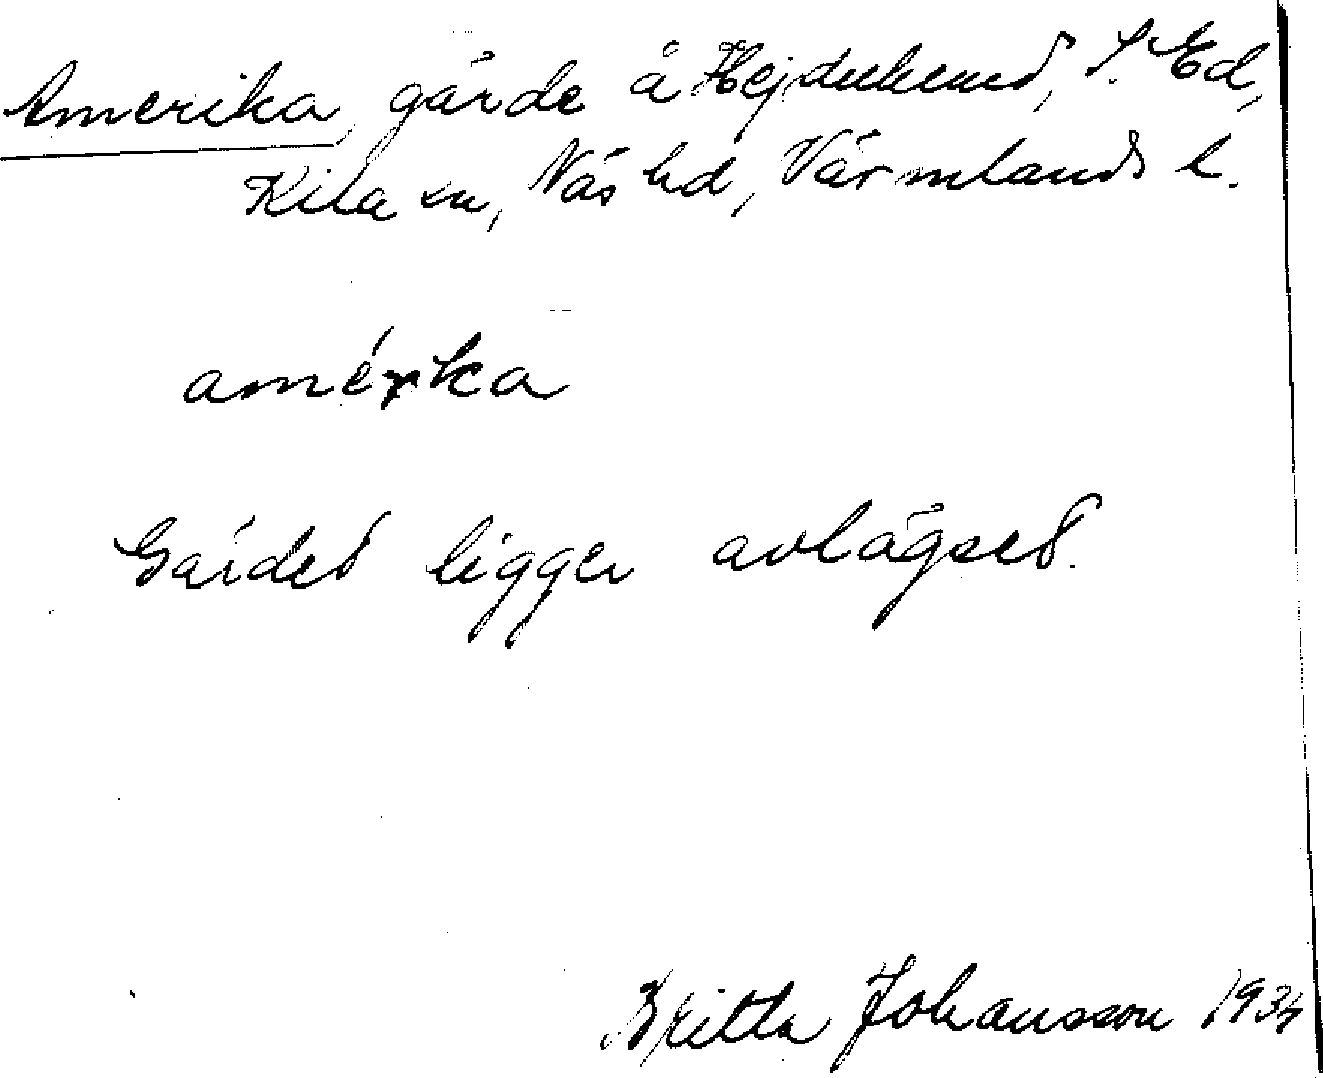 Amerika, gärde å Hejdukend, S. Ed,
Kila sn, Näs hd, Värmlands l.
amérka
Gärdet ligger avlägset.
Britta Johansson 1934